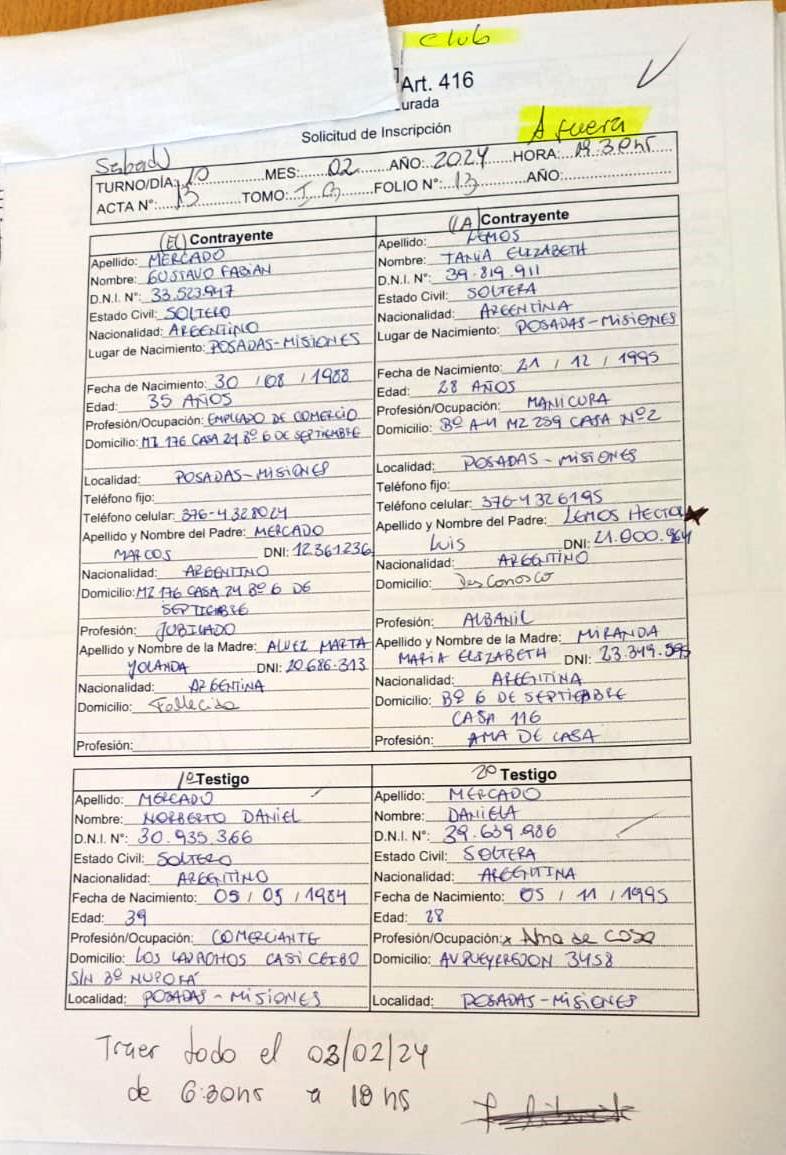 Club
Art. 416
urada
Solicitud de Inscripción
Afuera
Sabado
TURNO/DÍA: 10 MES: 02 AÑO: 2024 HORA: 19:30hr
ACTA N°: 13 TOMO: I FOLIO N°: 13 AÑO:
(El) Contrayente
Apellido: MERCADO
Nombre: GUSTAVO FABIAN
D.N.I. N°: 33.523.947
Estado Civil: SOLTERO
Nacionalidad: ARGENTINO
Lugar de Nacimiento: POSADAS-MISIONES
Fecha de Nacimiento: 30 / 08 / 1988
Edad: 35 AÑOS
Profesión/Ocupación: EMPLEADO DE COMERCIO
Domicilio: MZ 176 CASA 24 Bº 6 DE SEPTIEMBRE
Localidad: POSADAS-MISIONES
Teléfono fijo:
Teléfono celular: 376-4328024
Apellido y Nombre del Padre: MERCADO
MARCOS DNI: 12.361236
Nacionalidad: ARGENTINO
Domicilio: MZ 176 CASA 24 Bº 6 DE
SEPTIEMBRE
Profesión: JUBILADO
Apellido y Nombre de la Madre: ALVEZ MARTA
YOLANDA DNI: 20.686.313
Nacionalidad: ARGENTINA
Domicilio: Fallecida
Profesión:
(LA) Contrayente
Apellido: LEMOS
Nombre: TANIA ELIZABETH
D.N.I. N°: 39.819.911
Estado Civil: SOLTERA
Nacionalidad: ARGENTINA
Lugar de Nacimiento: POSADAS-MISIONES
Fecha de Nacimiento: 21 / 12 / 1995
Edad: 28 AÑOS
Profesión/Ocupación: MANICURA
Domicilio: Bº A-4 MZ 239 CASA Nº2
Localidad: POSADAS - MISIONES
Teléfono fijo:
Teléfono celular: 376-4326195
Apellido y Nombre del Padre: LEMOS HECTOR
LUIS DNI: 21.000.964
Nacionalidad: ARGENTINO
Domicilio: Desconosco
Profesión: ALBANIL
Apellido y Nombre de la Madre: MIRANDA
MARIA ELIZABETH DNI: 23.349.593
Nacionalidad: ARGENTINA
Domicilio: Bº 6 DE SEPTIEMBRE
CASA 116
Profesión: AMA DE CASA
1º Testigo
Apellido: MERCADO
Nombre: NORBERTO DANIEL
D.N.I. N°: 30.935.366
Estado Civil: SOLTERO
Nacionalidad: ARGENTINO
Fecha de Nacimiento: 05 / 05 / 1984
Edad: 39
Profesión/Ocupación: COMERCIANTE
Domicilio: LOS LAPACHOS CASI CEIBO
S/N Bº ÑUPORÁ
Localidad: POSADAS - MISIONES
2º Testigo
Apellido: MERCADO
Nombre: DANIELA
D.N.I. N°: 39.639.986
Estado Civil: SOLTERA
Nacionalidad: ARGENTINA
Fecha de Nacimiento: 05 / 11 / 1995
Edad: 28
Profesión/Ocupación: x Ama de casa
Domicilio: AV PUEYRREDON 3458
Localidad: POSADAS-MISIONES
Traer todo el 03/02/24
de 6:30hs a 18 hs